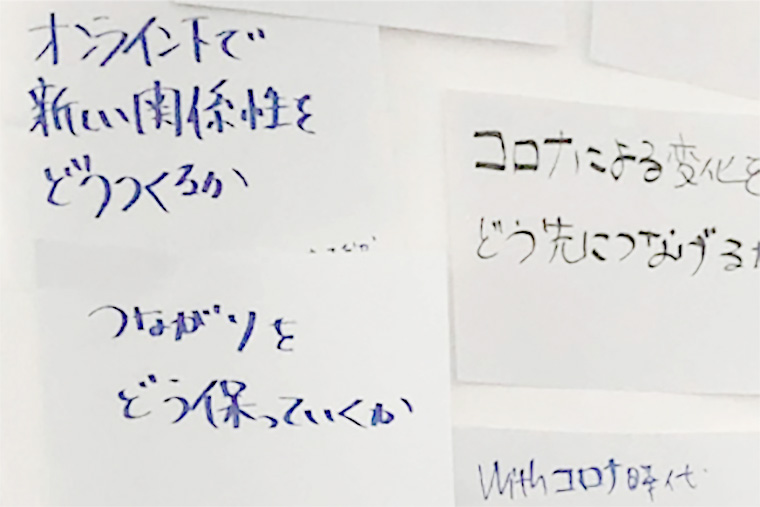 オンライントで
新しい関係性を
どうつくるか
つながりを
どう保っていくか
コロナによる変化を
どう先につなげるか
withコロナ時代